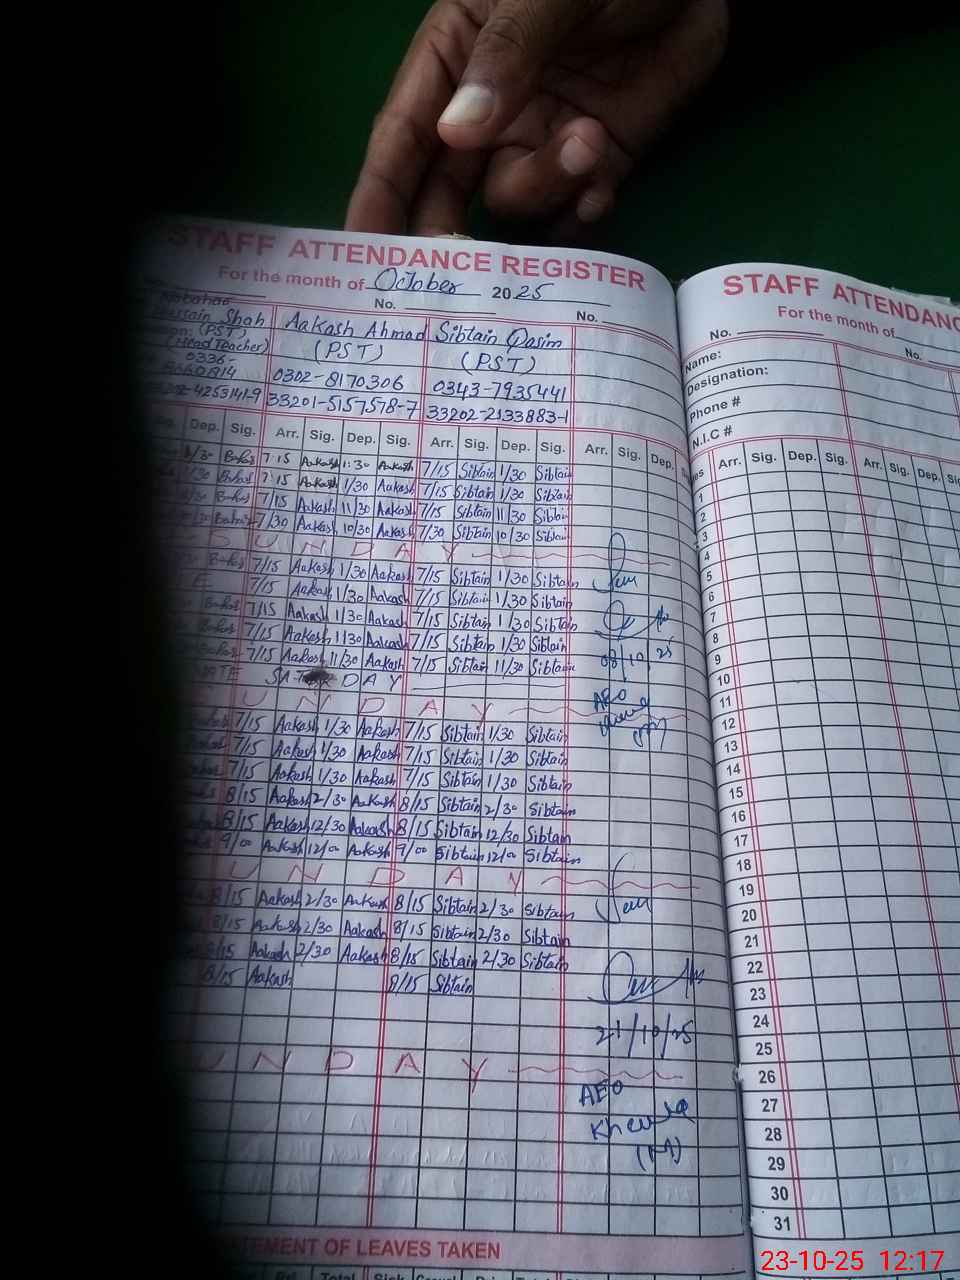 STAFF ATTENDANCE REGISTER
For the month of October 2025
No. No.
Shah Aakash Ahmad Sibtain Qasim
(PST) (PST) (PST)
(Head Teacher)
0336-
0302-8170306 0343-7935441
4253141-9 33201-5157578-7 33202-2133883-1
Dep. Sig. Arr. Sig. Dep. Sig. Arr. Sig. Dep. Sig. Arr. Sig. Dep.
7:15 Aakash 1:30 Aakash 7/15 Sibtain 1/30 Sibtain
7:15 Aakash 1/30 Aakash 7/15 Sibtain 1/30 Sibtain
7/15 Aakash 11/30 Aakash 7/15 Sibtain 11/30 Sibtain
7/30 Aakash 10/30 Aakash 7/30 Sibtain 10/30 Sibtain
U N D A Y
7/15 Aakash 1/30 Aakash 7/15 Sibtain 1/30 Sibtain
7/15 Aakash 1/30 Aakash 7/15 Sibtain 1/30 Sibtain
7/15 Aakash 1/30 Aakash 7/15 Sibtain 1/30 Sibtain
7/15 Aakash 1/30 Aakash 7/15 Sibtain 1/30 Sibtain
7/15 Aakash 11/30 Aakash 7/15 Sibtain 11/30 Sibtain
08/10/25
DAY
AEO
U N D A Y
7/15 Aakash 1/30 Aakash 7/15 Sibtain 1/30 Sibtain
7/15 Aakash 1/30 Aakash 7/15 Sibtain 1/30 Sibtain
7/15 Aakash 1/30 Aakash 7/15 Sibtain 1/30 Sibtain
8/15 Aakash 2/30 Aakash 8/15 Sibtain 2/30 Sibtain
8/15 Aakash 12/30 Aakash 8/15 Sibtain 12/30 Sibtain
9/00 Aakash 12/00 Aakash 9/00 Sibtain 12/00 Sibtain
U N D A Y
8/15 Aakash 2/30 Aakash 8/15 Sibtain 2/30 Sibtain
8/15 Aakash 2/30 Aakash 8/15 Sibtain 2/30 Sibtain
8/15 Aakash 2/30 Aakash 8/15 Sibtain 2/30 Sibtain
8/15 Aakash 8/15 Sibtain
21/10/25
U N D A Y
AEO
TEMENT OF LEAVES TAKEN
Total Sick
STAFF ATTENDANC
For the month of
No. No.
Name:
Designation:
Phone #
N.I.C #
Arr. Sig. Dep. Sig. Arr. Sig. Dep.
1
2
3
4
5
6
7
8
9
10
11
12
13
14
15
16
17
18
19
20
21
22
23
24
25
26
27
28
29
30
31
23-10-25 12:17